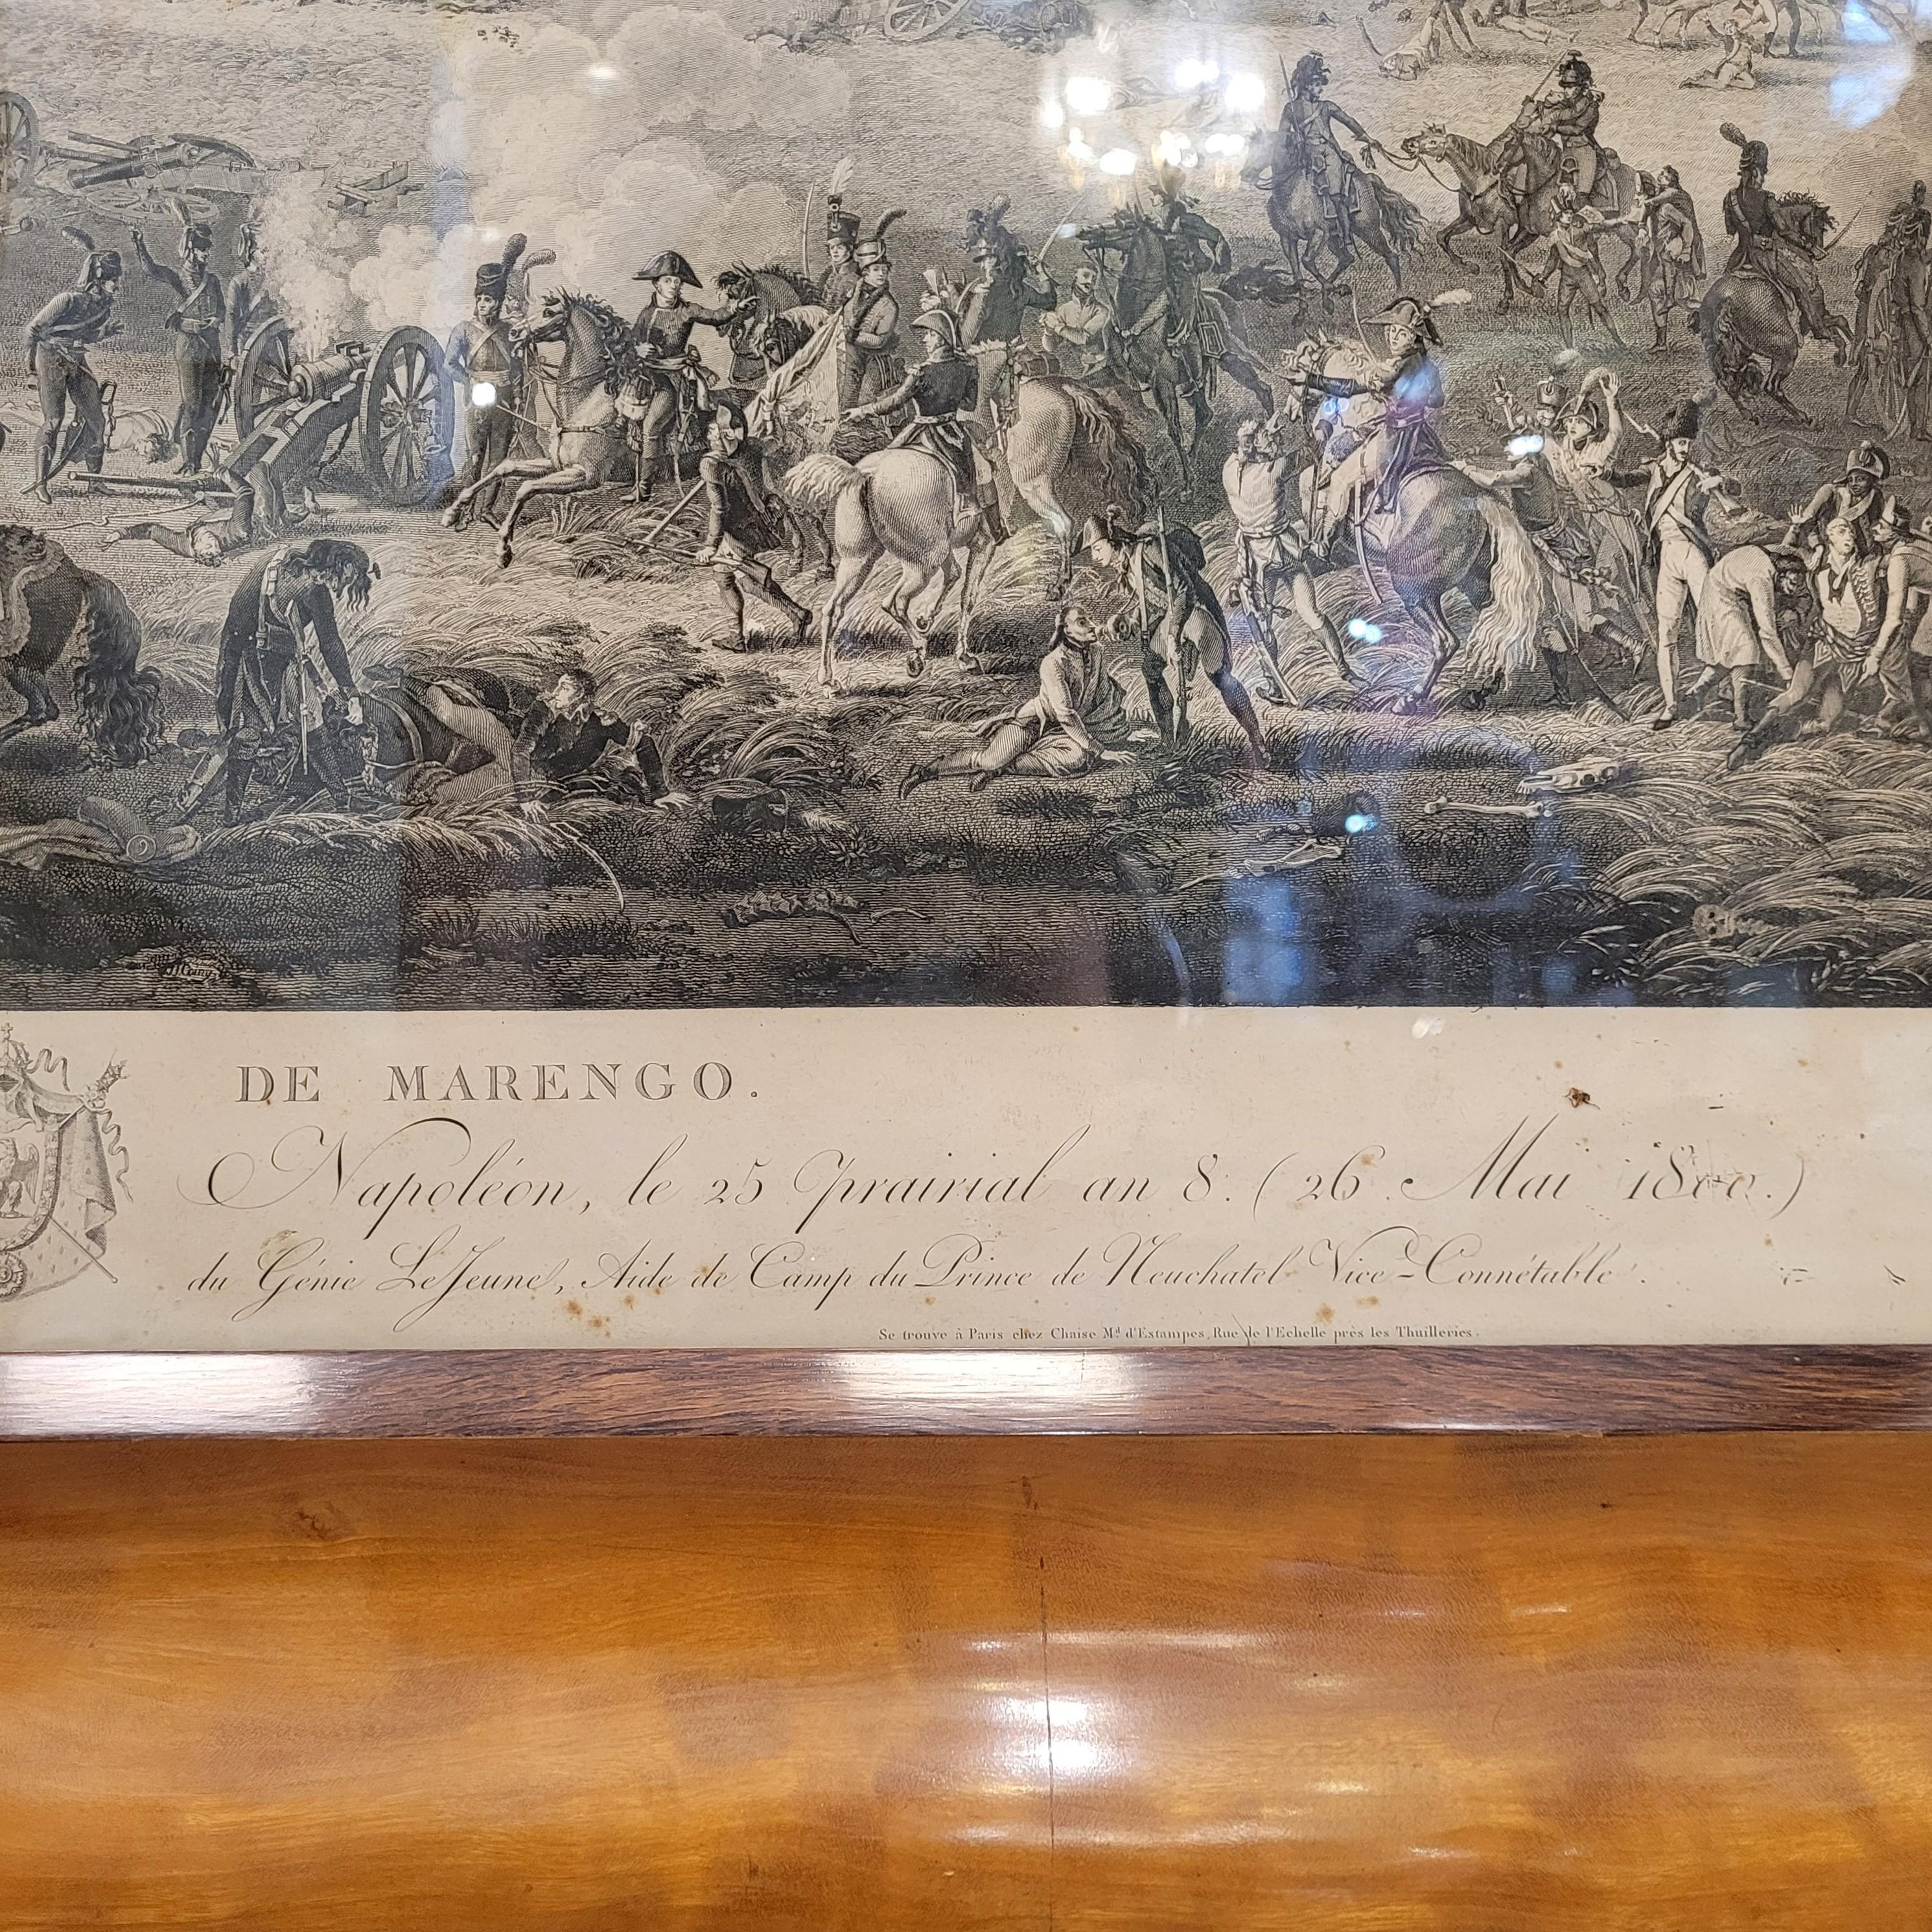 Coiny
DE MARENGO.
Napoléon, le 25 prairial an 8. (26 Mai 1800.)
du Génie LeJeune, Aide de Camp du Prince de Neuchatel Vice-Connétable.
Se trouve à Paris chez Chaise Md d'Estampes, Rue de l'Echelle près les Thuilleries.